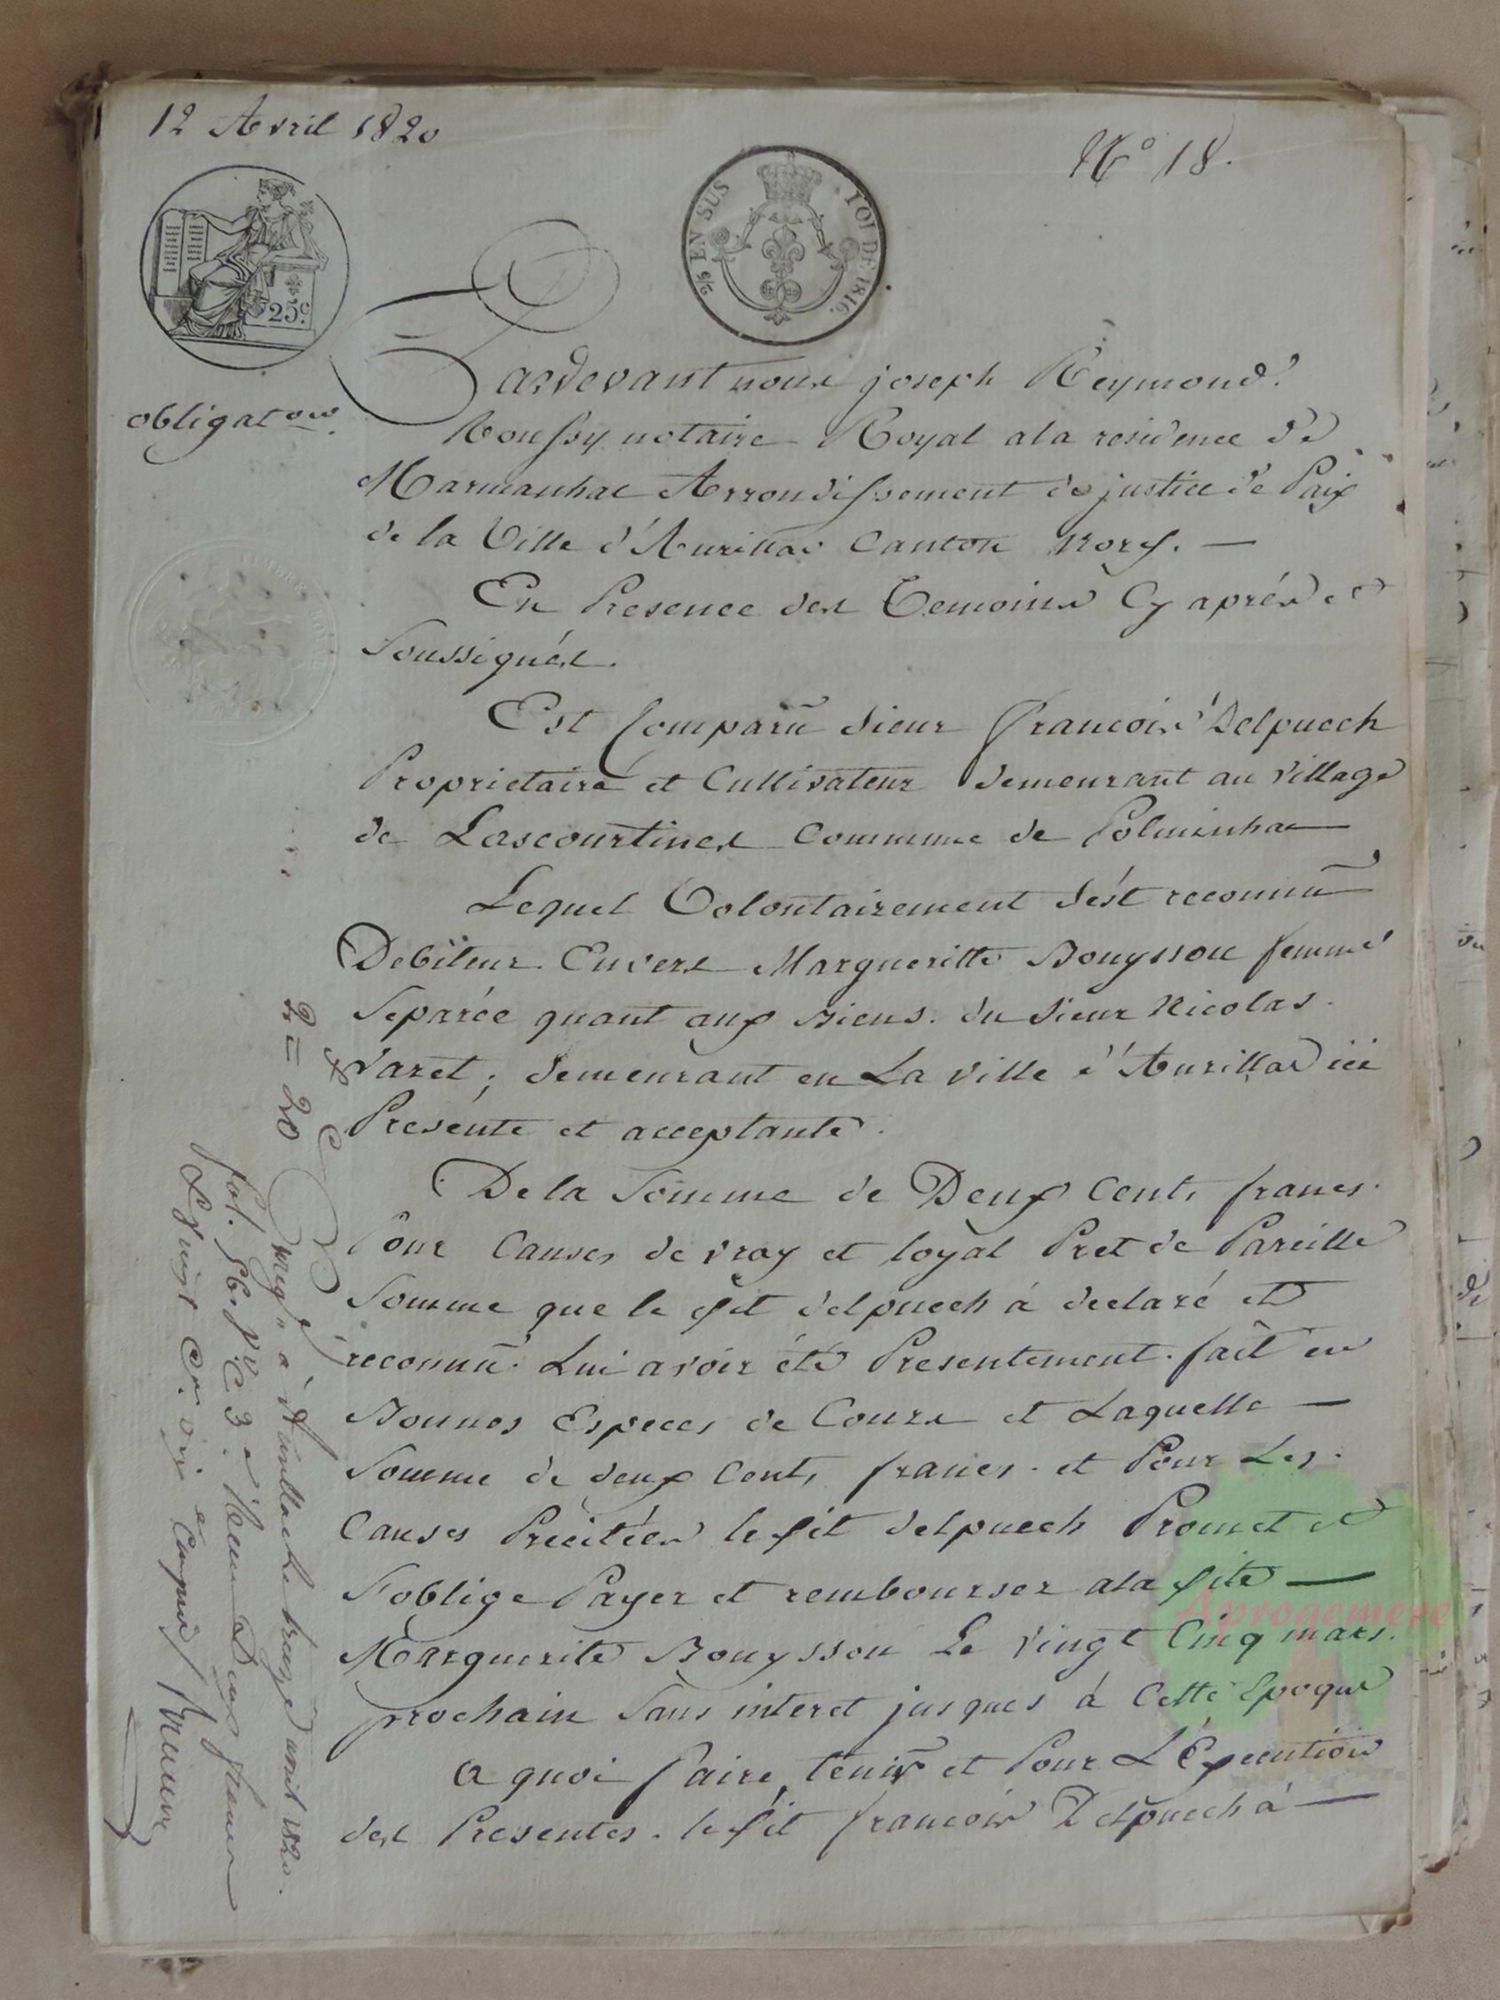 12 Avril 1820
N° 18.
2/5 EN SUS
LOI DE 1816.
25c.
obligat.on
Pardevant nous joseph Reymond
Roussy notaire Royal a la residence de
Marmanhac Arrondissement de justice de Paix
de la Ville d'Aurillac Canton Nord. —
En Presence des Temoins Cy après et
Soussignés.
Est Comparû Sieur francois Delpuech
Proprietaire et Cultivateur demeurant au village
de Lascourtines Commune de Polminhac
Lequel Volontairement s'ést reconnû
Debiteur Envers Margueritte Bouyssou femme
Separée quant aux Biens. du Sieur Nicolas
Varet, demeurant en La ville d'Aurillac ici
Presente et acceptante.
De la Somme de Deux Cents francs.
Pour Causes de vray et loyal Pret de Pareille
Somme que le dit delpuech à declaré et
reconnû. Lui avoir été Presentement. fait en
Bonnes Especes de Cours et Laquelle —
Somme de deux Cents francs. et Pour Les.
Causes Precitées le dit delpuech Promet et
s'oblige Payer et rembourser a la dite —
Marguerite Bouyssou Le vingt Cinq mars.
prochain Sans interet jusques à Cette Epoque
a quoi faire, tenir et Pour L'Execution
des Presentes. le dit francois Delpuech à —
2 = 20
à Aurillac le treize avril 1820.
fol. 56. v° C 3. deux francs
vingt
Aprogemere